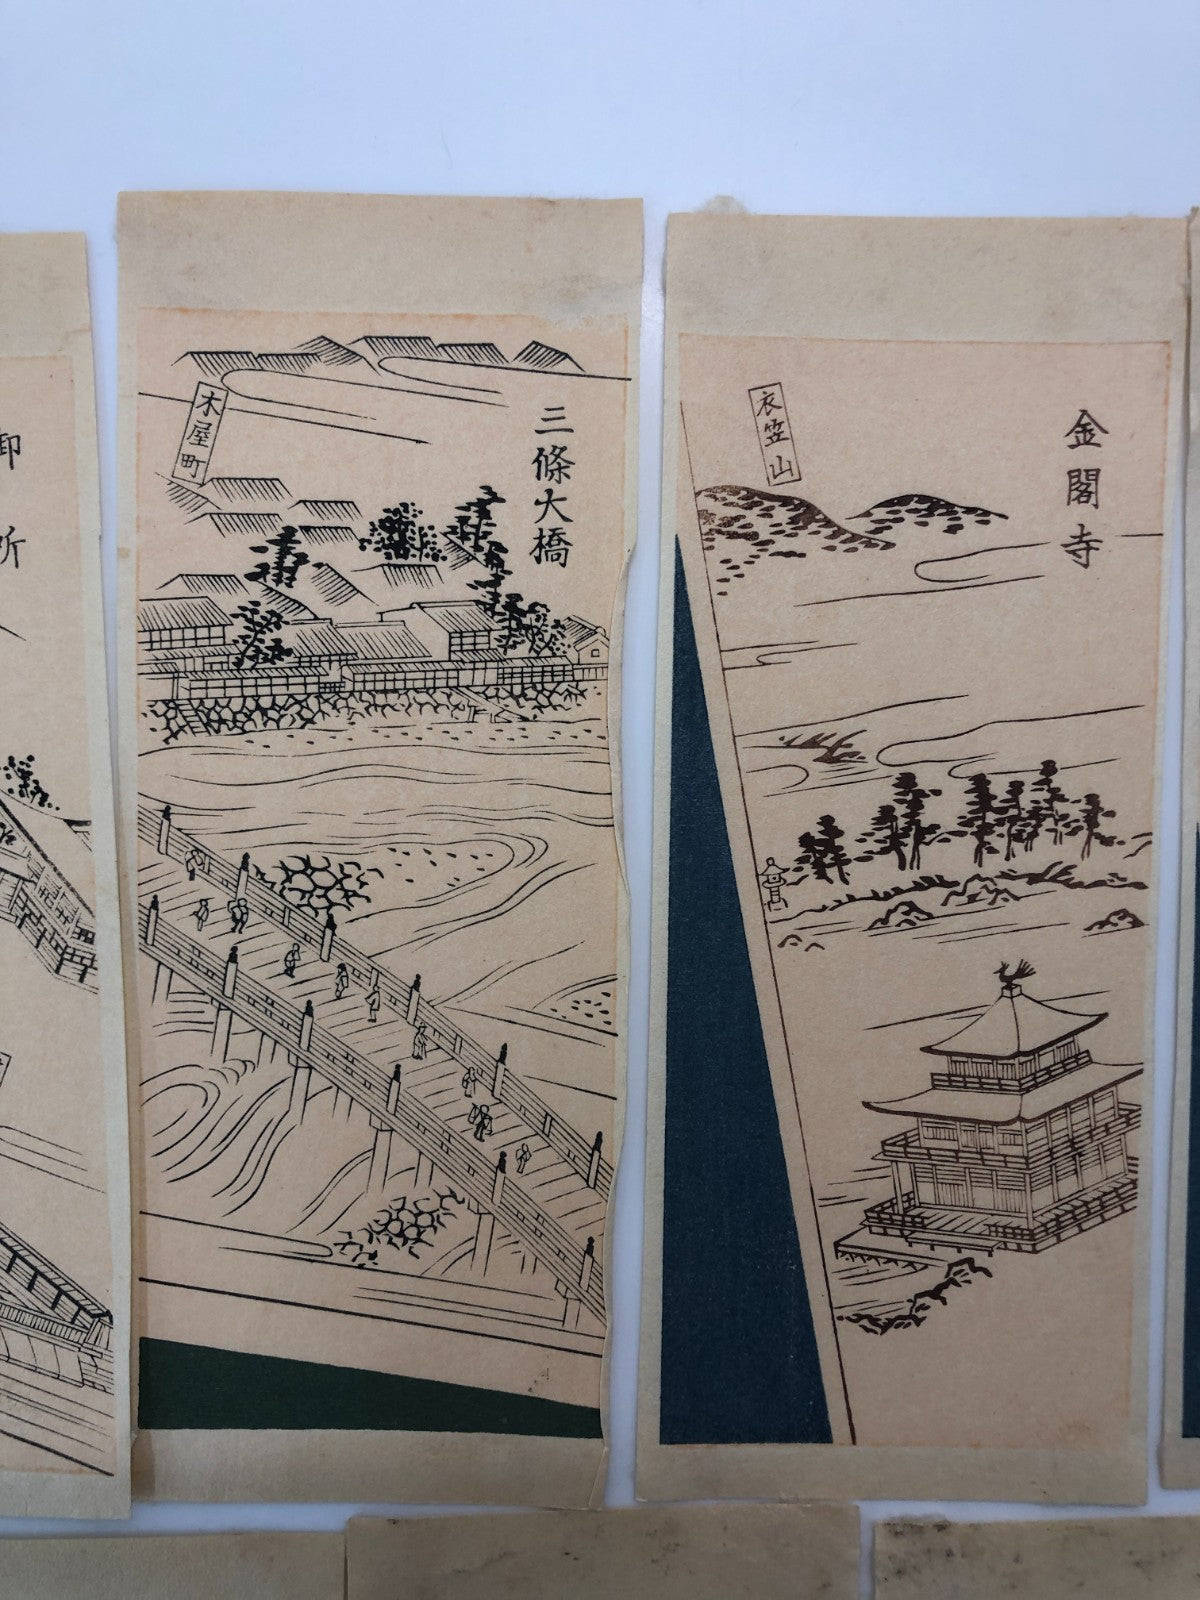 三條大橋
木屋町
金閣寺
衣笠山
御所